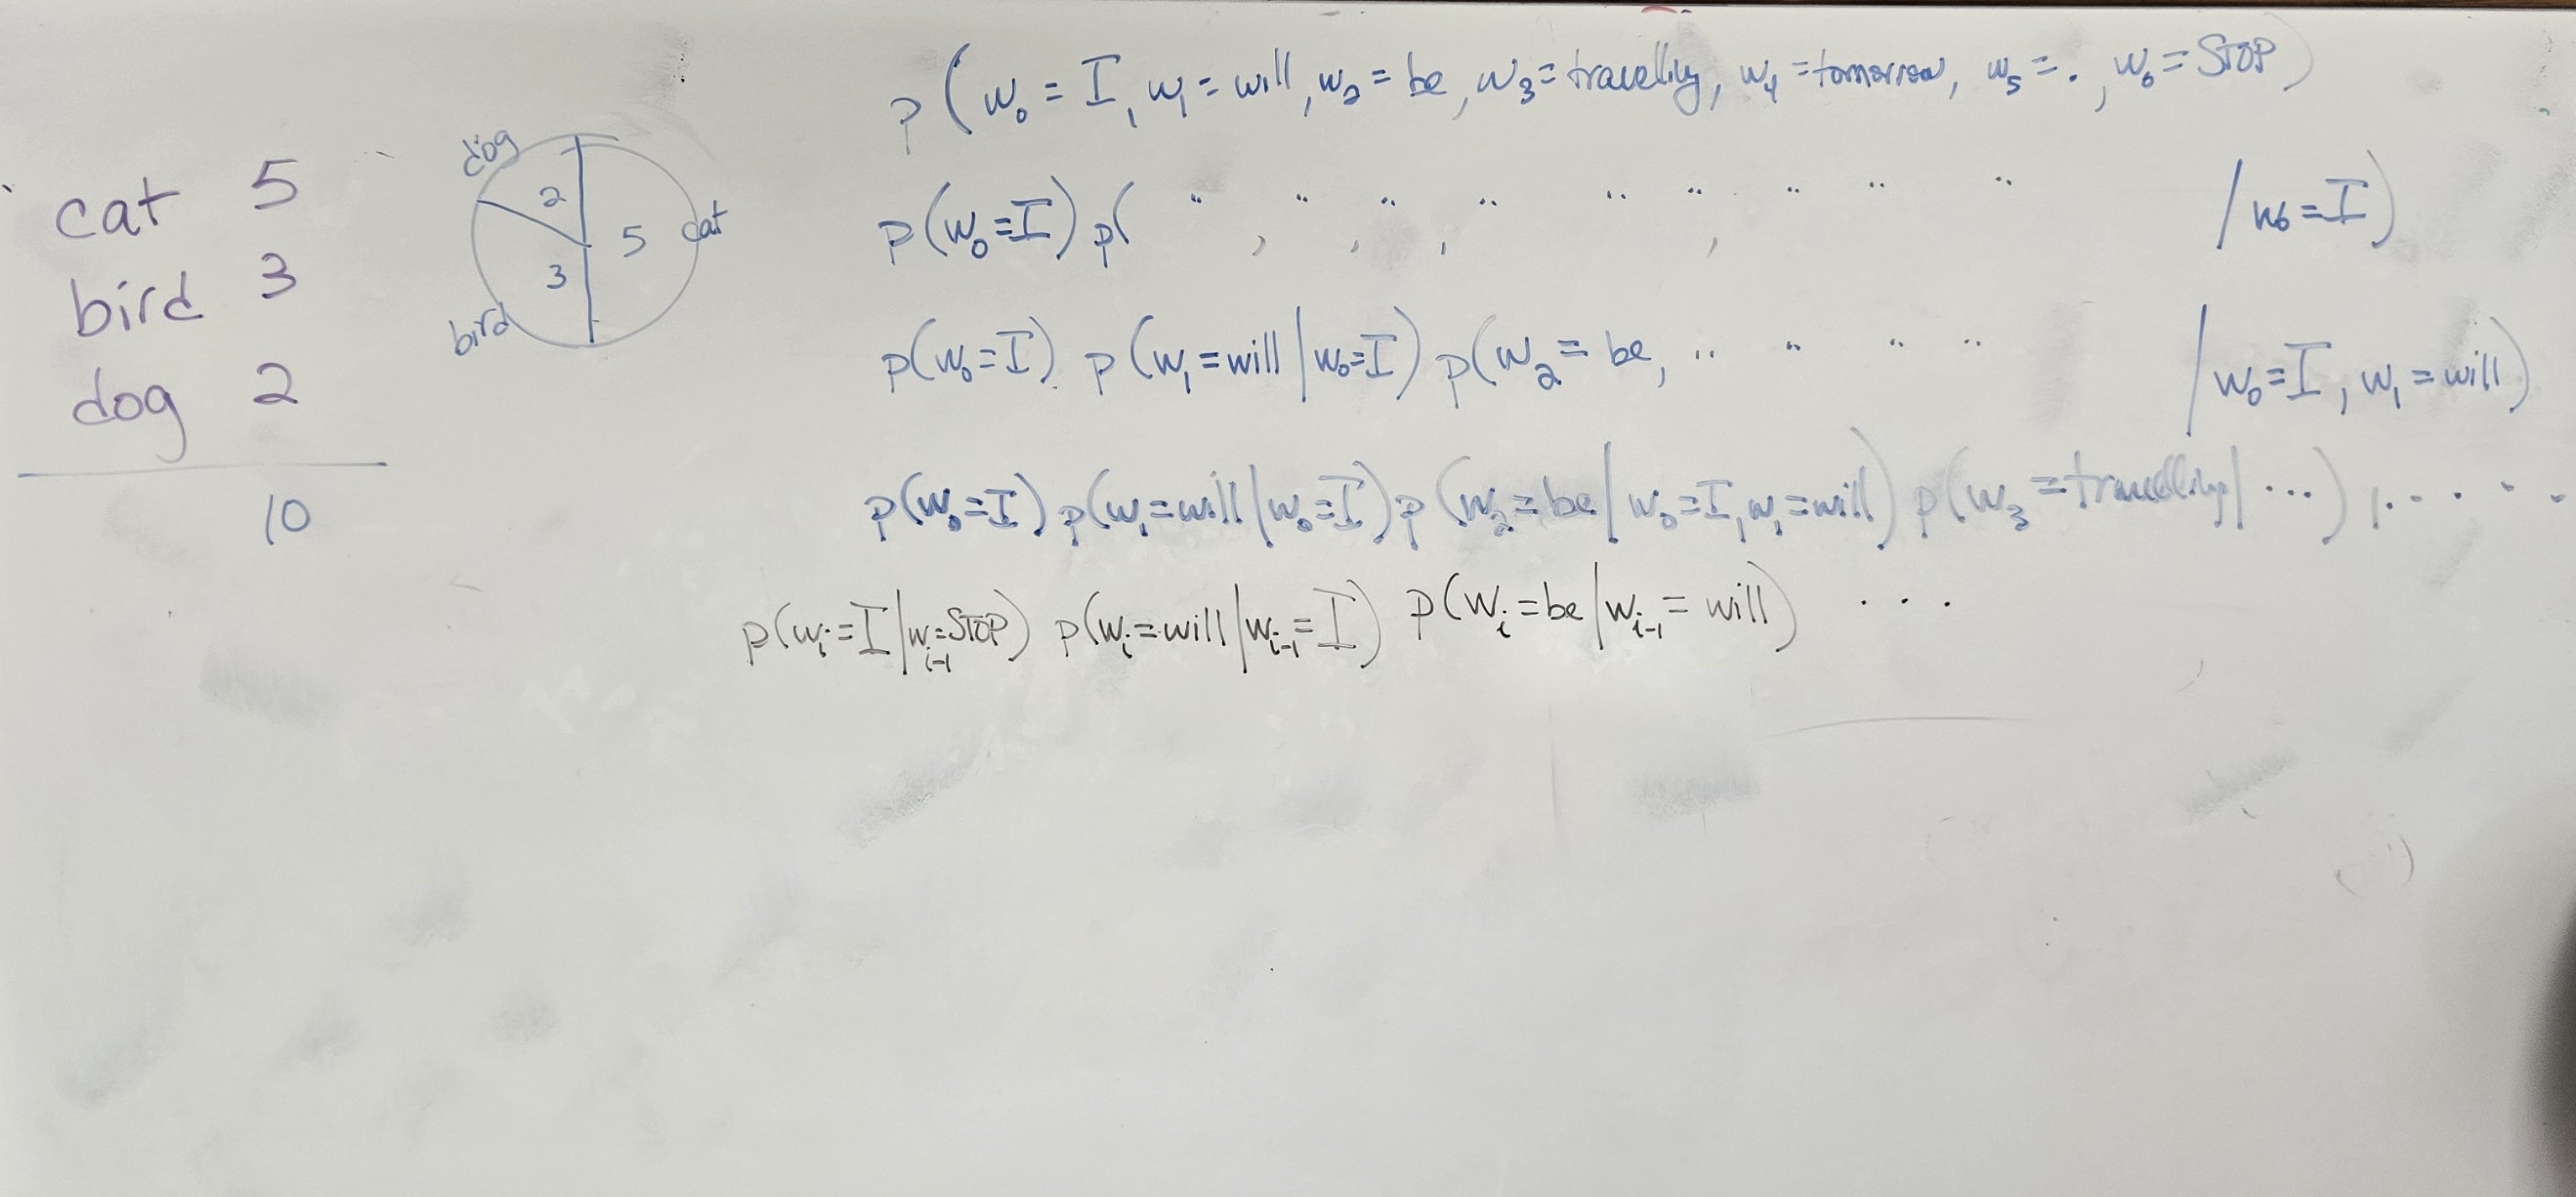 cat 5
bird 3
dog 2
10
dog
2
5 cat
3
bird
p(w₀ = I, w₁ = will, w₂ = be, w₃ = travelling, w₄ = tomorrow, w₅ = ., w₆ = STOP)
p(w₀=I) p( " , " , " , " " " , " " " | w₀=I)
p(w₀=I) p(w₁=will|w₀=I) p(w₂=be, " " " " | w₀=I, w₁=will)
p(w₀=I) p(w₁=will|w₀=I) p(w₂=be|w₀=I, w₁=will) p(w₃=travelling|...) ....
p(wᵢ=I|wᵢ₋₁=STOP) p(wᵢ=will|wᵢ₋₁=I) p(wᵢ=be|wᵢ₋₁=will) ...